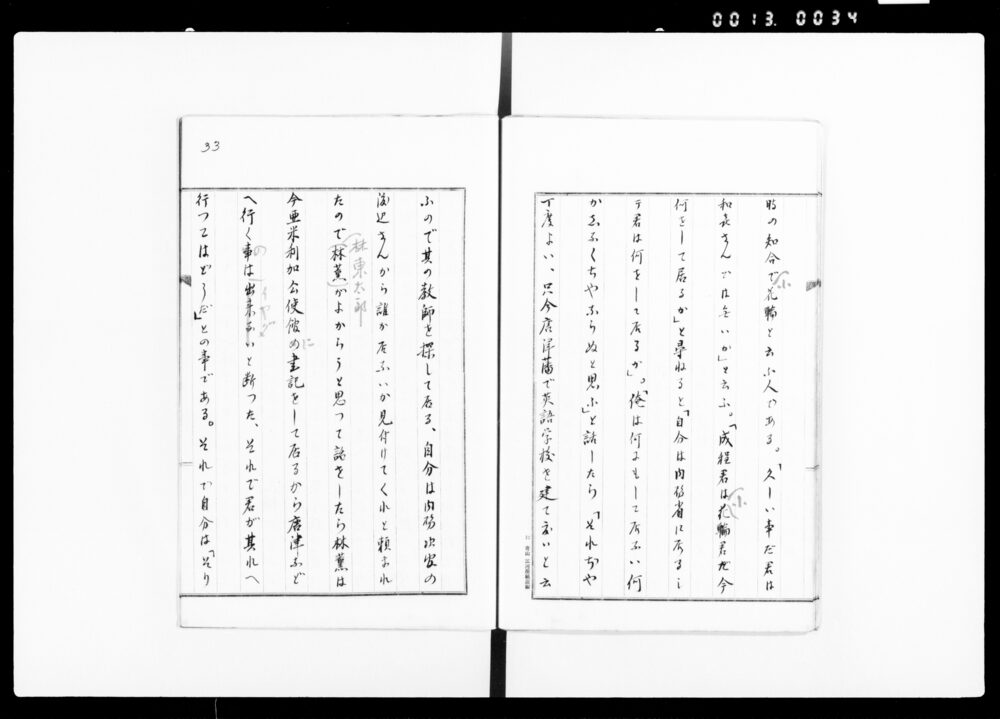 0013.0034
時の知合で花輪と云ふ人である。「久しい事だ君は
小
和喜さんでは無いか」と云ふ。「成程君は花輪君だ今
小
何をして居るか」と尋ねると「自分は内務省に居るし
テ君は何をして居るか」。「俺は何にもして居ない何
かゑなくちやならぬと思ふ」と話したら「それぢや
丁度よい、只今唐津藩で英語学校を建て度いと云
33
ふので其の教師を探して居る、自分は内務次官の
渡辺さんから誰か居ないか見付けてくれと頼まれ
たので林薫がよからうと思つて話をしたら林薫は
林東太郎
今亜米利加公使館の書記をして居るから唐津など
に
へ行く事は出来ないと断つた、それで君が其れへ
の
行つてはどうだ」との事である。それで自分は「そり